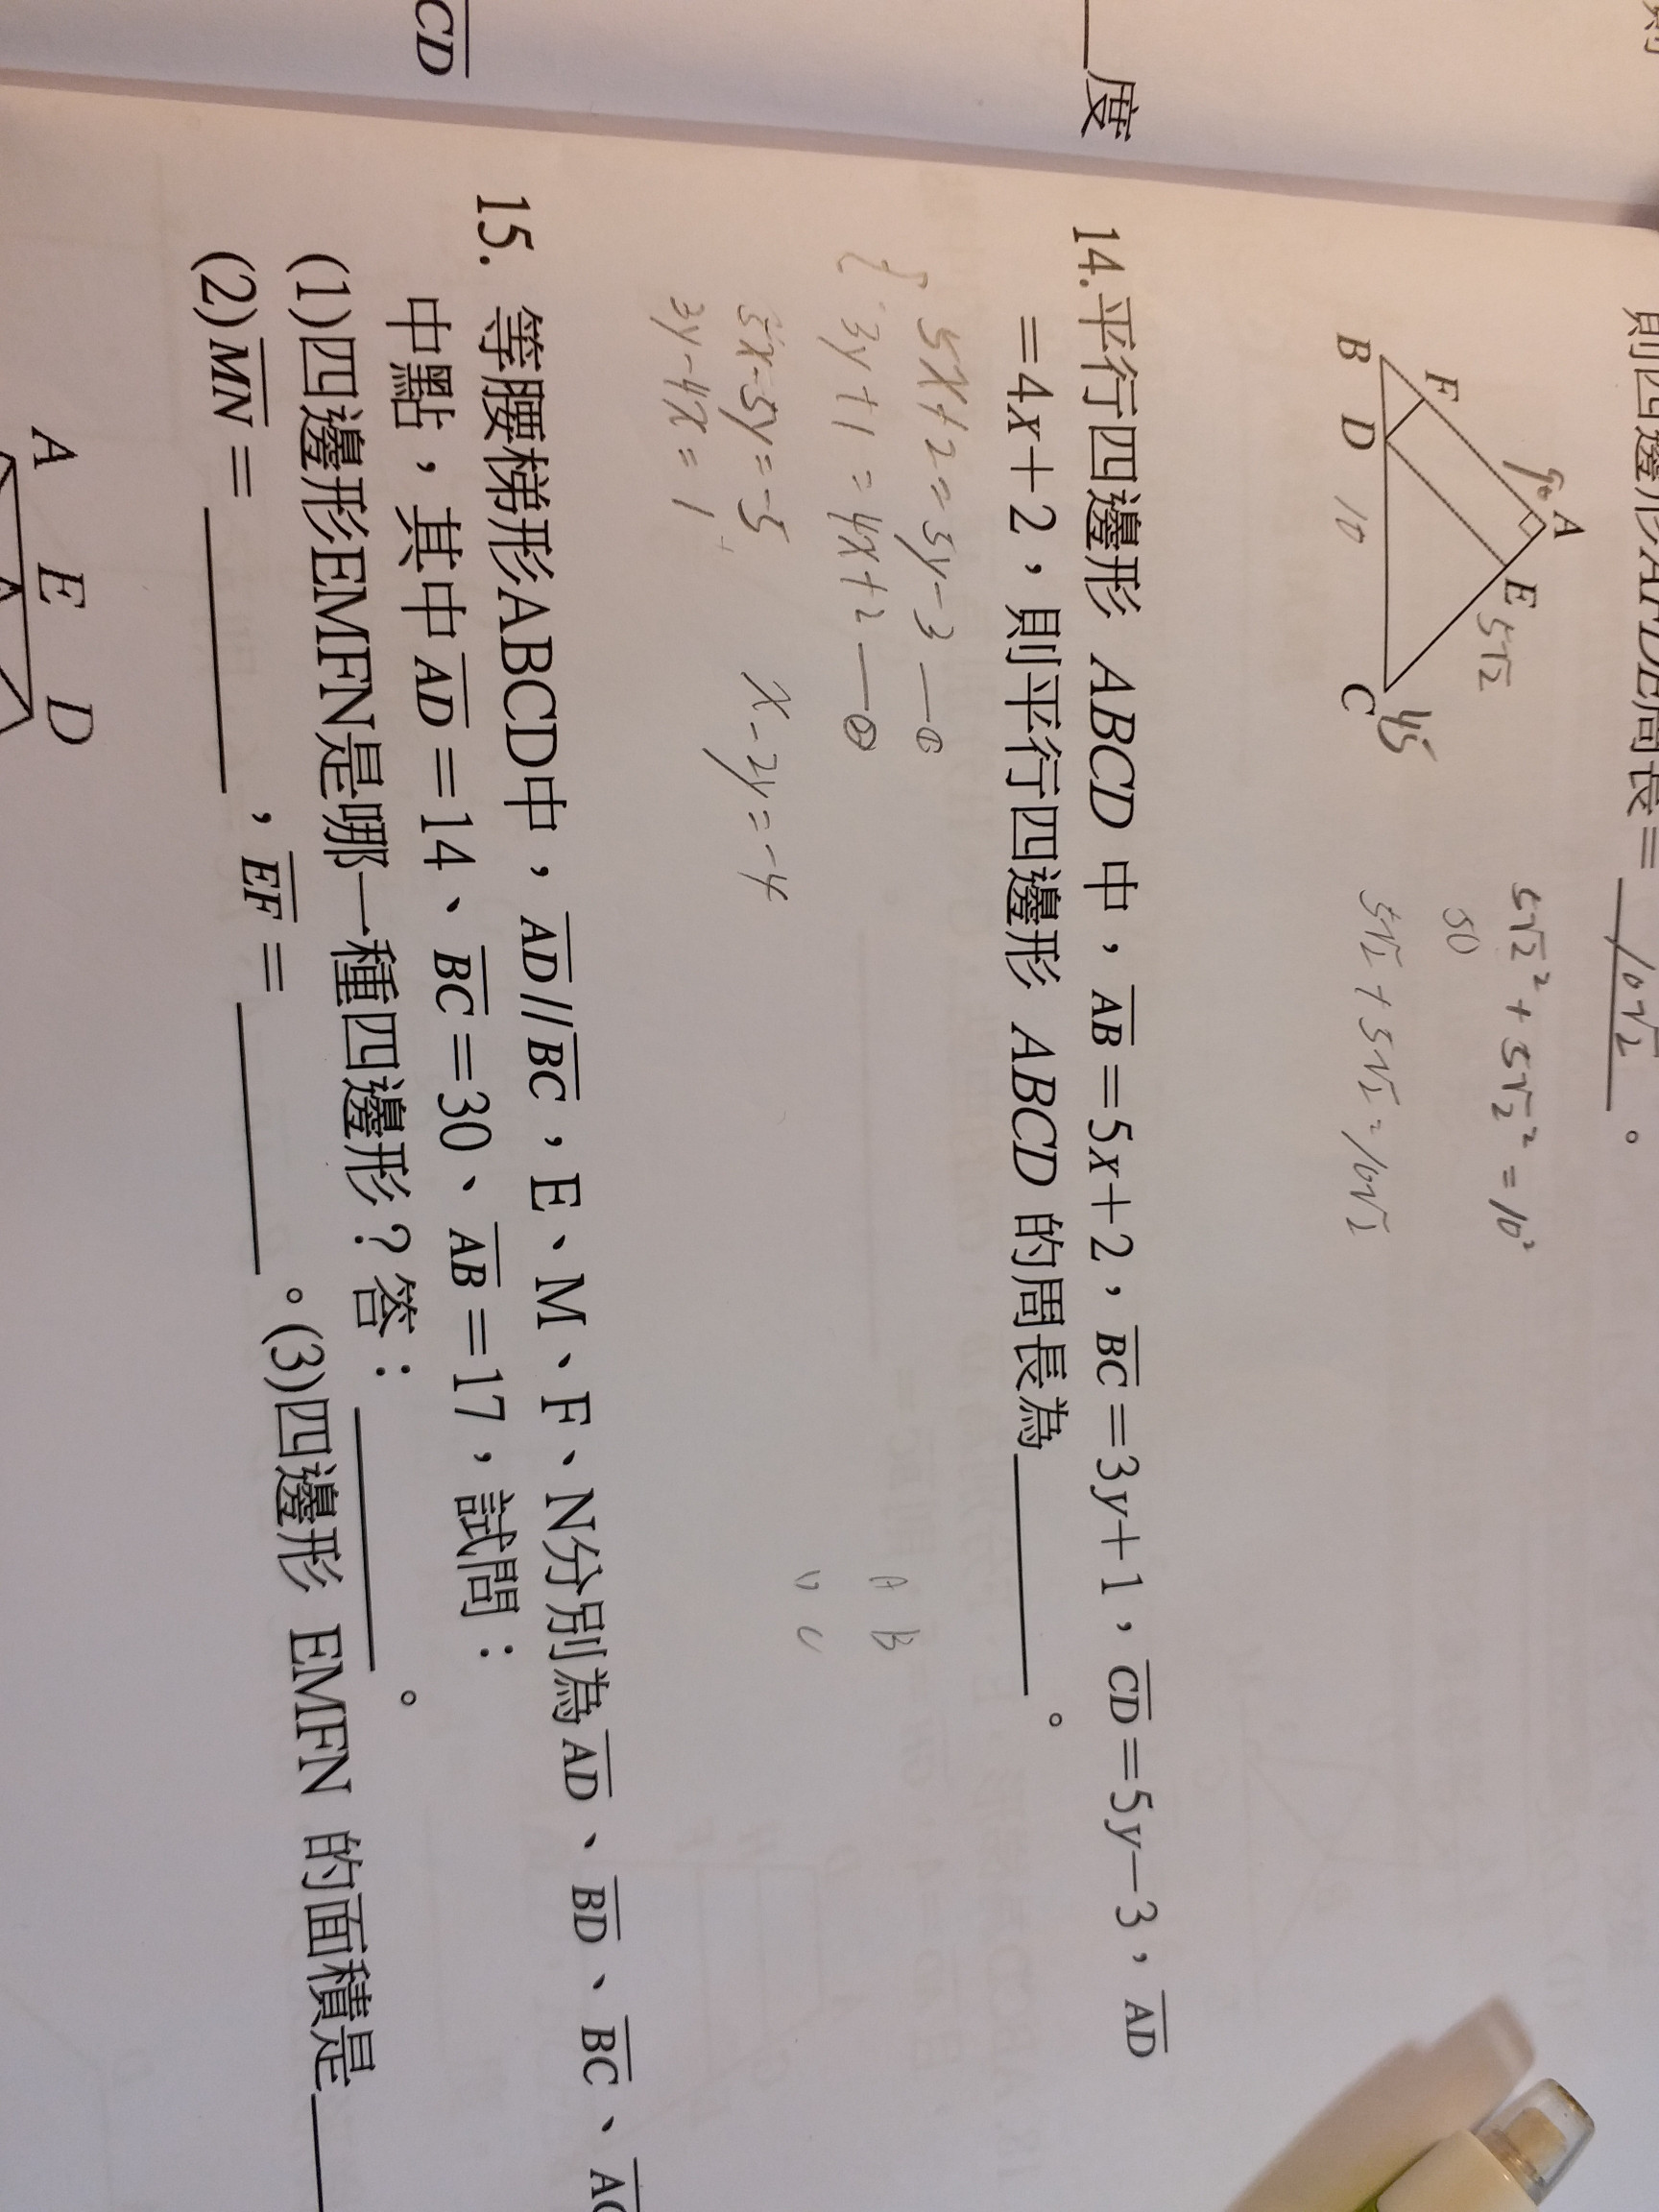 則四邊形AFDE周長＝ 10√2 。
A
E
F
B
D
C
90
5√2
10
45
5√2² + 5√2² = 10²
50
5√2 + 5√2 = 10√2
度
14.平行四邊形 ABCD 中，AB＝5x＋2，BC＝3y＋1，CD＝5y－3，AD
＝4x＋2，則平行四邊形 ABCD 的周長為＿＿＿＿。
5x+2=5y-3 —①
3y+1=4x+2 —②
5x-5y=-5
3y-4x=1
x-2y=-4
A B
D C
CD
15. 等腰梯形ABCD中，AD//BC，E、M、F、N分別為AD、BD、BC、AC
中點，其中AD＝14、BC＝30、AB＝17，試問：
(1)四邊形EMFN是哪一種四邊形？答：＿＿＿＿。
(2)MN＝＿＿＿＿，EF＝＿＿＿＿。(3)四邊形 EMFN 的面積是＿＿
A E D